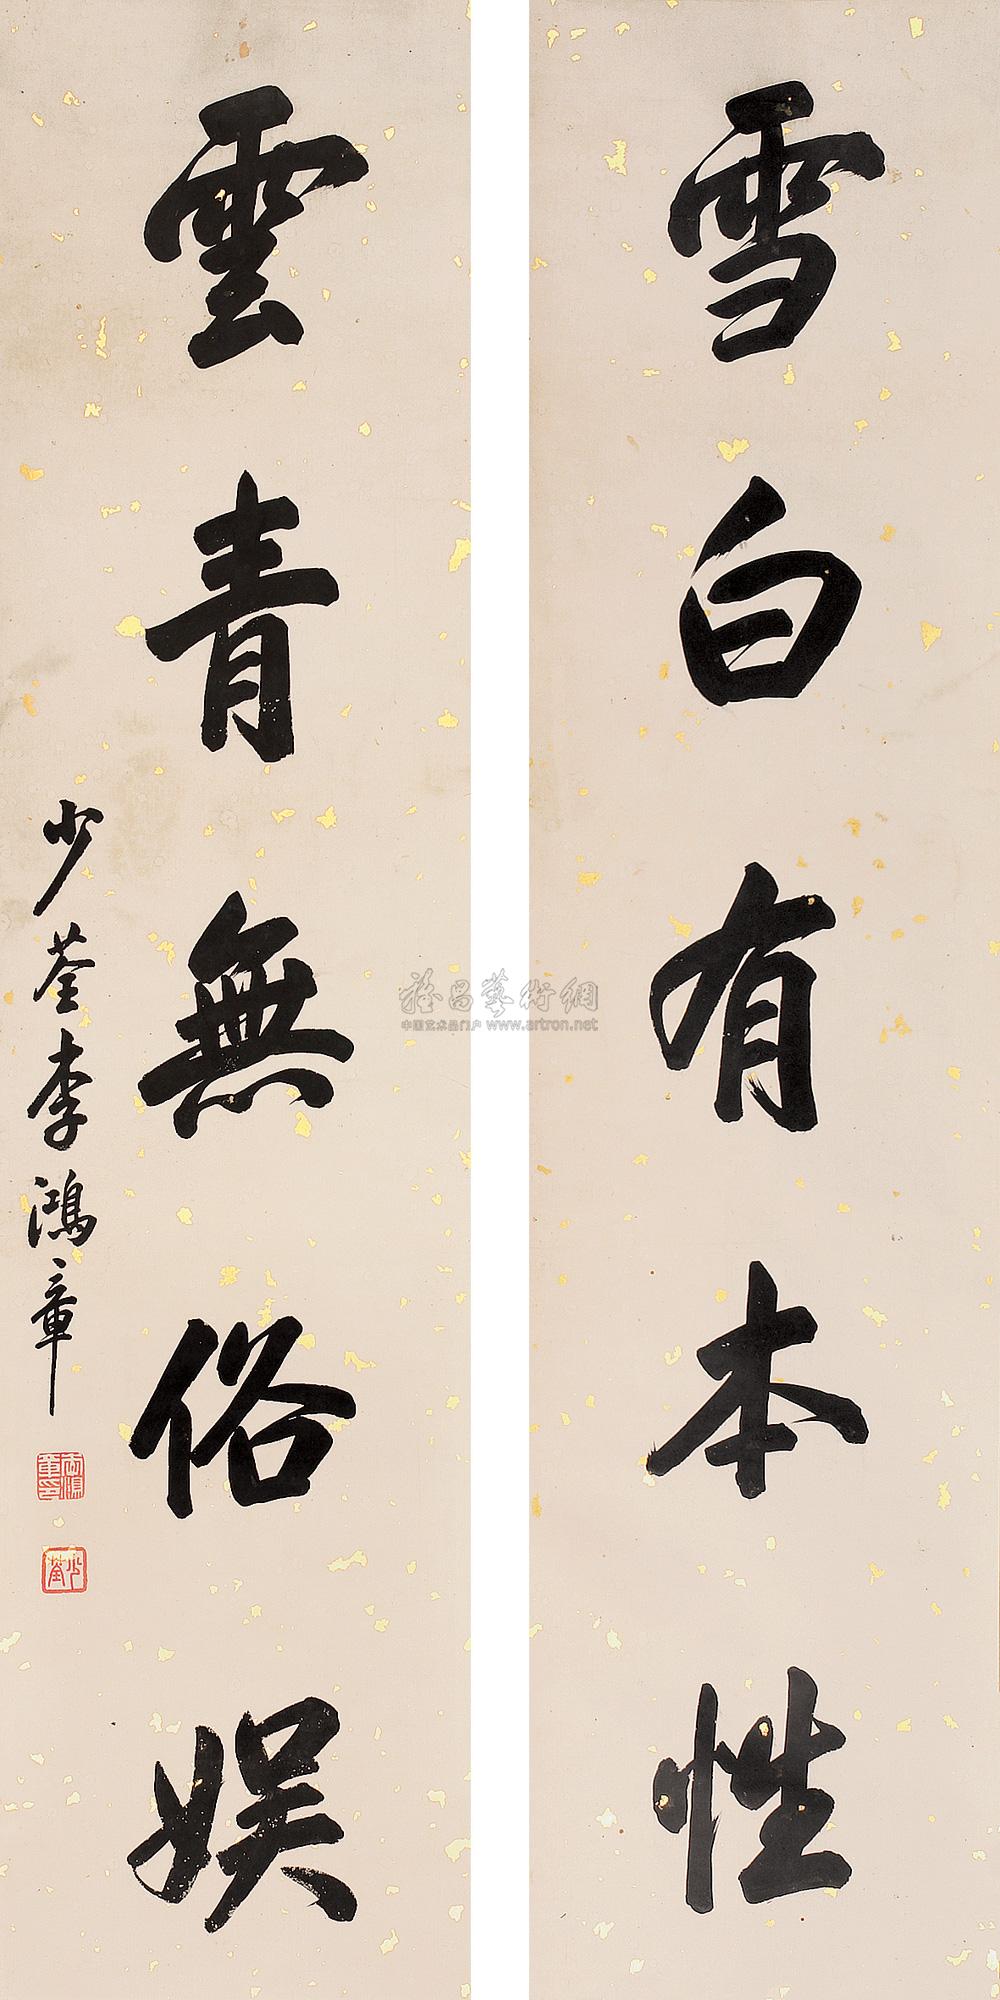 雪白有本性
雲青無俗娱
少荃李鴻章
少荃
雅昌藝術網
中国艺术品门户 www.artron.net